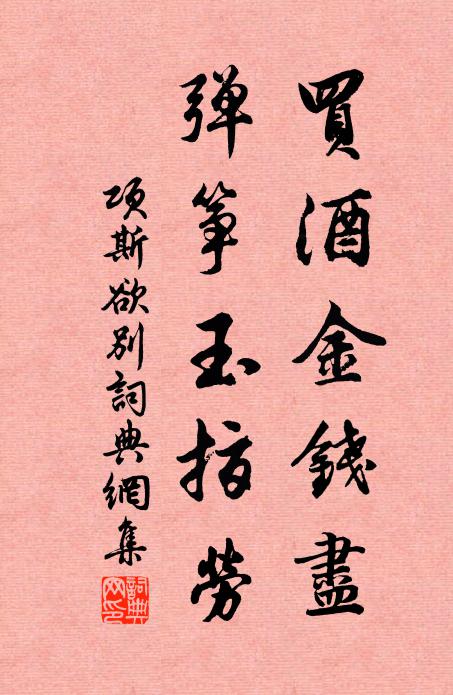 買酒金錢盡
彈箏玉指勞
項斯欲別詞典網集
詞典網印